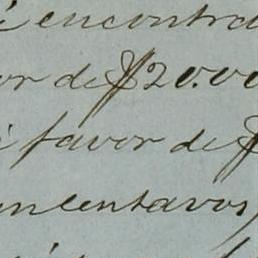 i encontra
or de $20.00
i favor de $
encentavos,